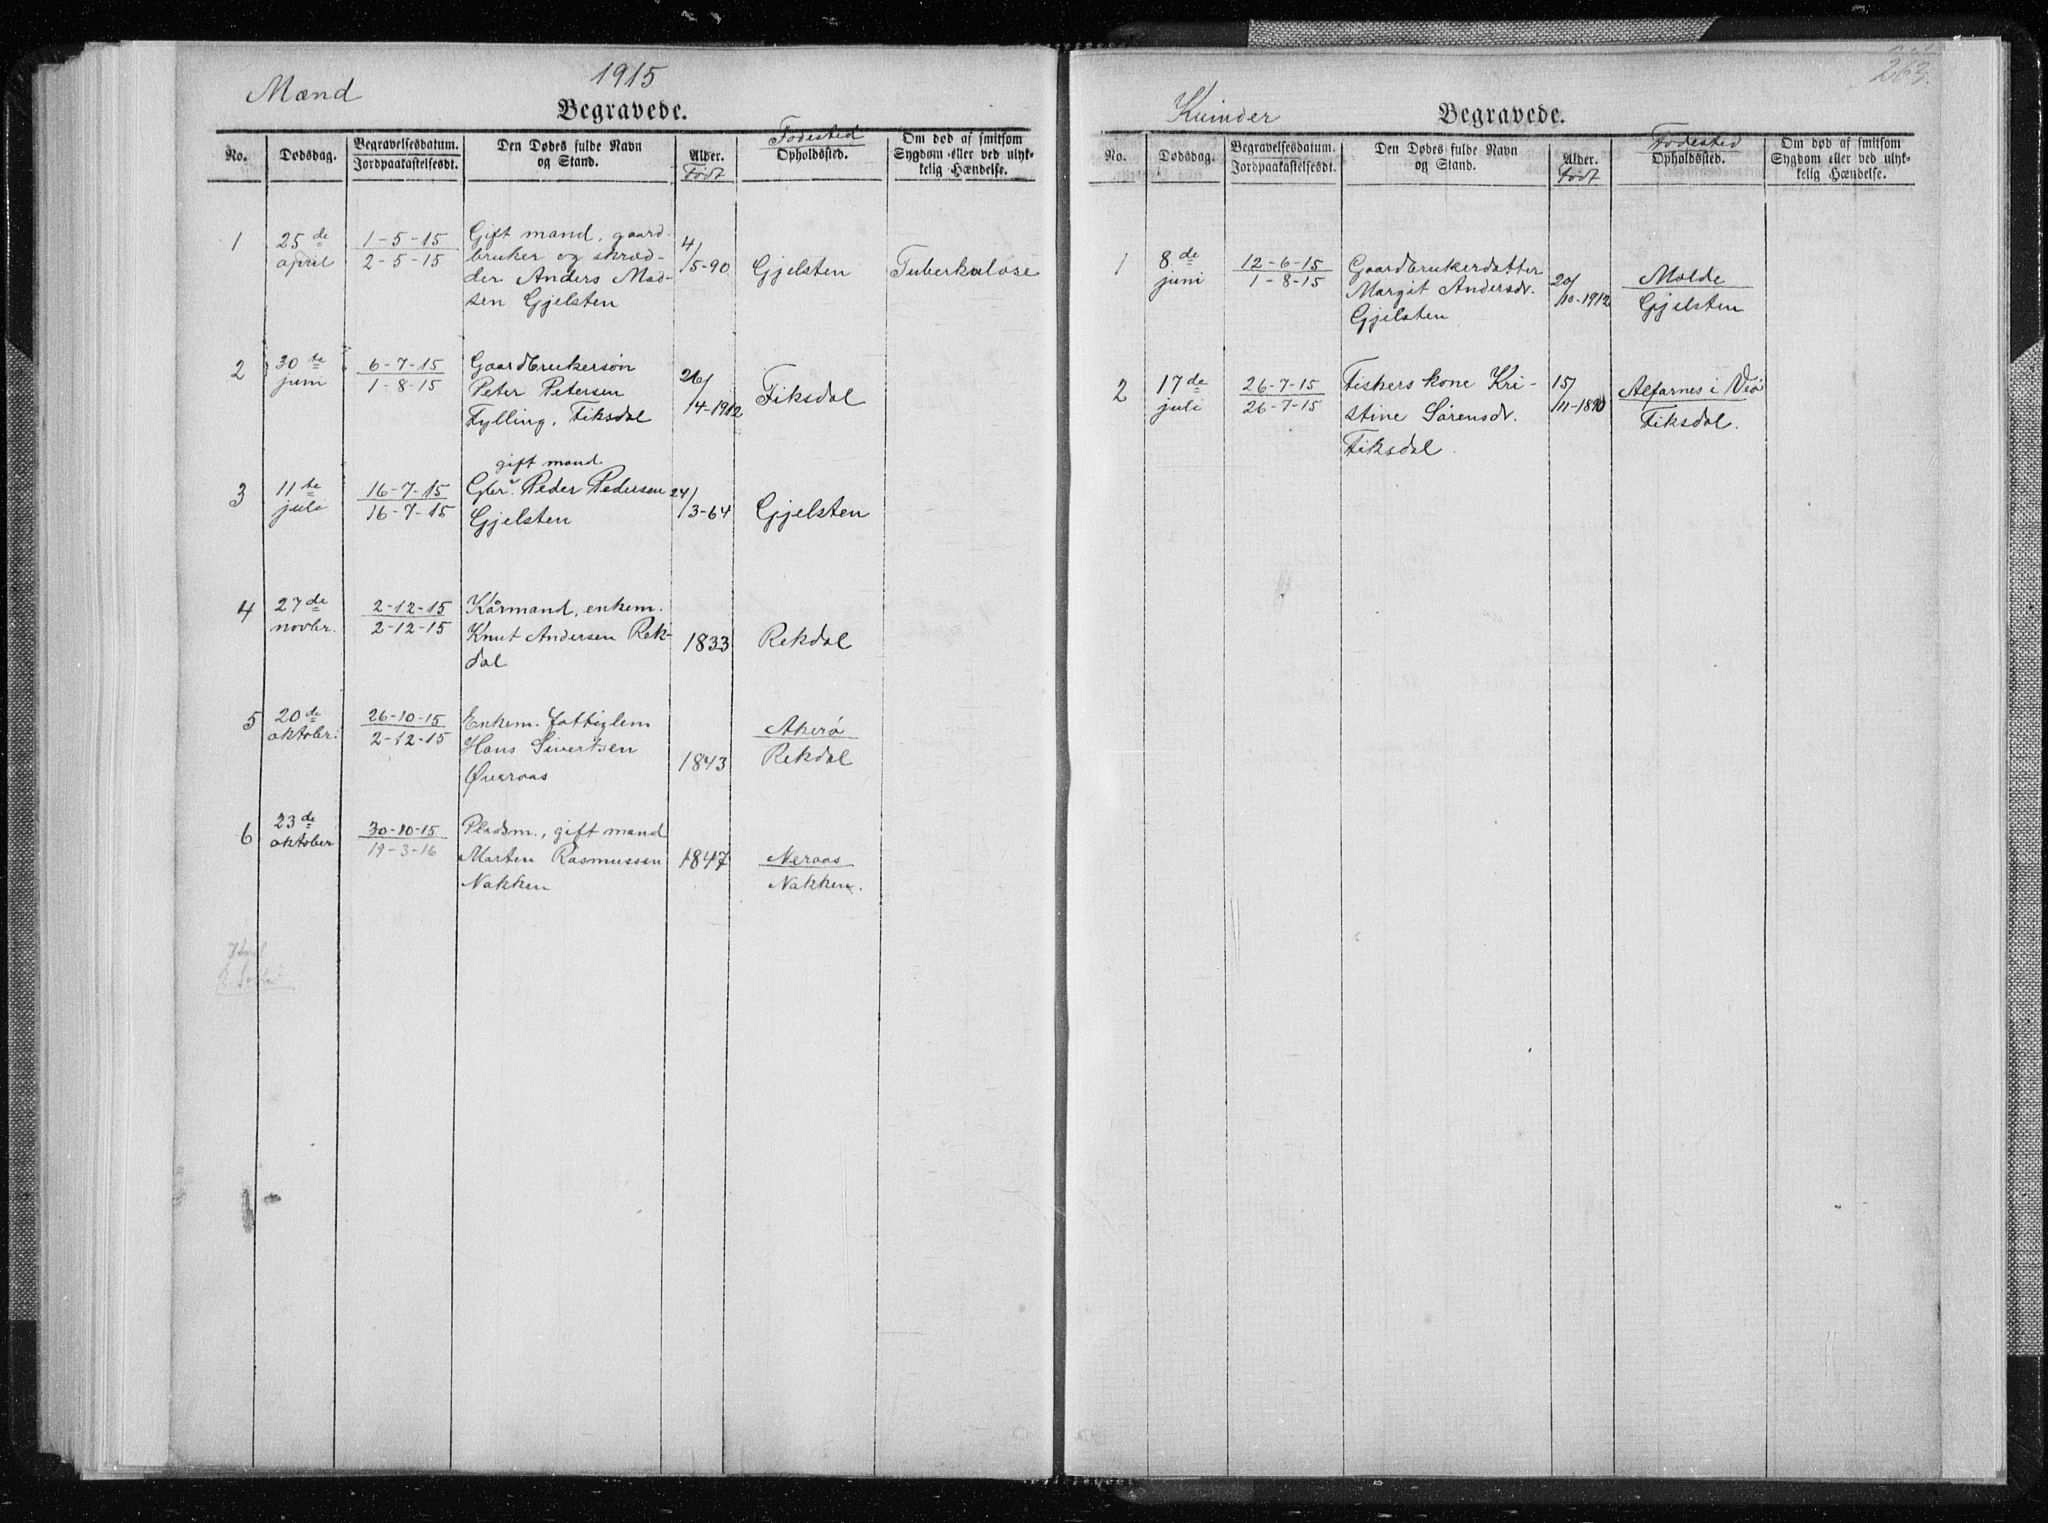 Mænd
1915
Begravede.
No.
Dødsdag.
Begravelsesdatum.
Jordpaakastelsesdt.
Den Dødes fulde Navn
og Stand.
Alder.
Født
Fødested
Opholdssted.
Om død af smitsom
Sygdom eller ved ulyk-
kelig Hændelse.
1
25de
april
1-5-15
2-5-15
Gift mand, gaard-
bruker og skræd-
der Anders Mad-
sen Gjelsten
4/
/5-90
Gjelsten
Tuberkulose
2
30te
juni
6-7-15
1-8-15
Gaardbrukersøn
Peter Petersen
Fylling, Fiksdal
26/
/4-1912
Fiksdal
3
11te
juli
16-7-15
16-7-15
gift mand
Gbr. Peder Pedersen
Gjelsten
24/
/3-64
Gjelsten
4
27de
novbr.
2-12-15
2-12-15
Kårmand, enkem.
Knut Andersen Rek-
dal
1833
Rekdal
5
20de
oktobr.
26-10-15
2-12-15
Enkem. fattiglem
Hans Sivertsen
Øveraas
1843
Akerø
Rekdal
6
23de
oktober
30-10-15
19-3-16
Pladsm., gift mand
Marten Rasmussen
Nakken
1847
Neraas
Nakken.
263.
Kvinder
Begravede.
No.
Dødsdag.
Begravelsesdatum.
Jordpaakastelsesdt.
Den Dødes fulde Navn
og Stand.
Alder.
Født
Fødested
Opholdssted.
Om død af smitsom
Sygdom eller ved ulyk-
kelig Hændelse.
1
8de
juni
12-6-15
1-8-15
Gaardbrukerdatter
Margit Andersdr.
Gjelsten
20/
/10-1912
Molde
Gjelsten
2
17de
juli
26-7-15
26-7-15
Fiskers kone Kri-
stine Sørensdr.
Fiksdal.
15/
/11-1890
Alfarnes i Veø
Fiksdal.